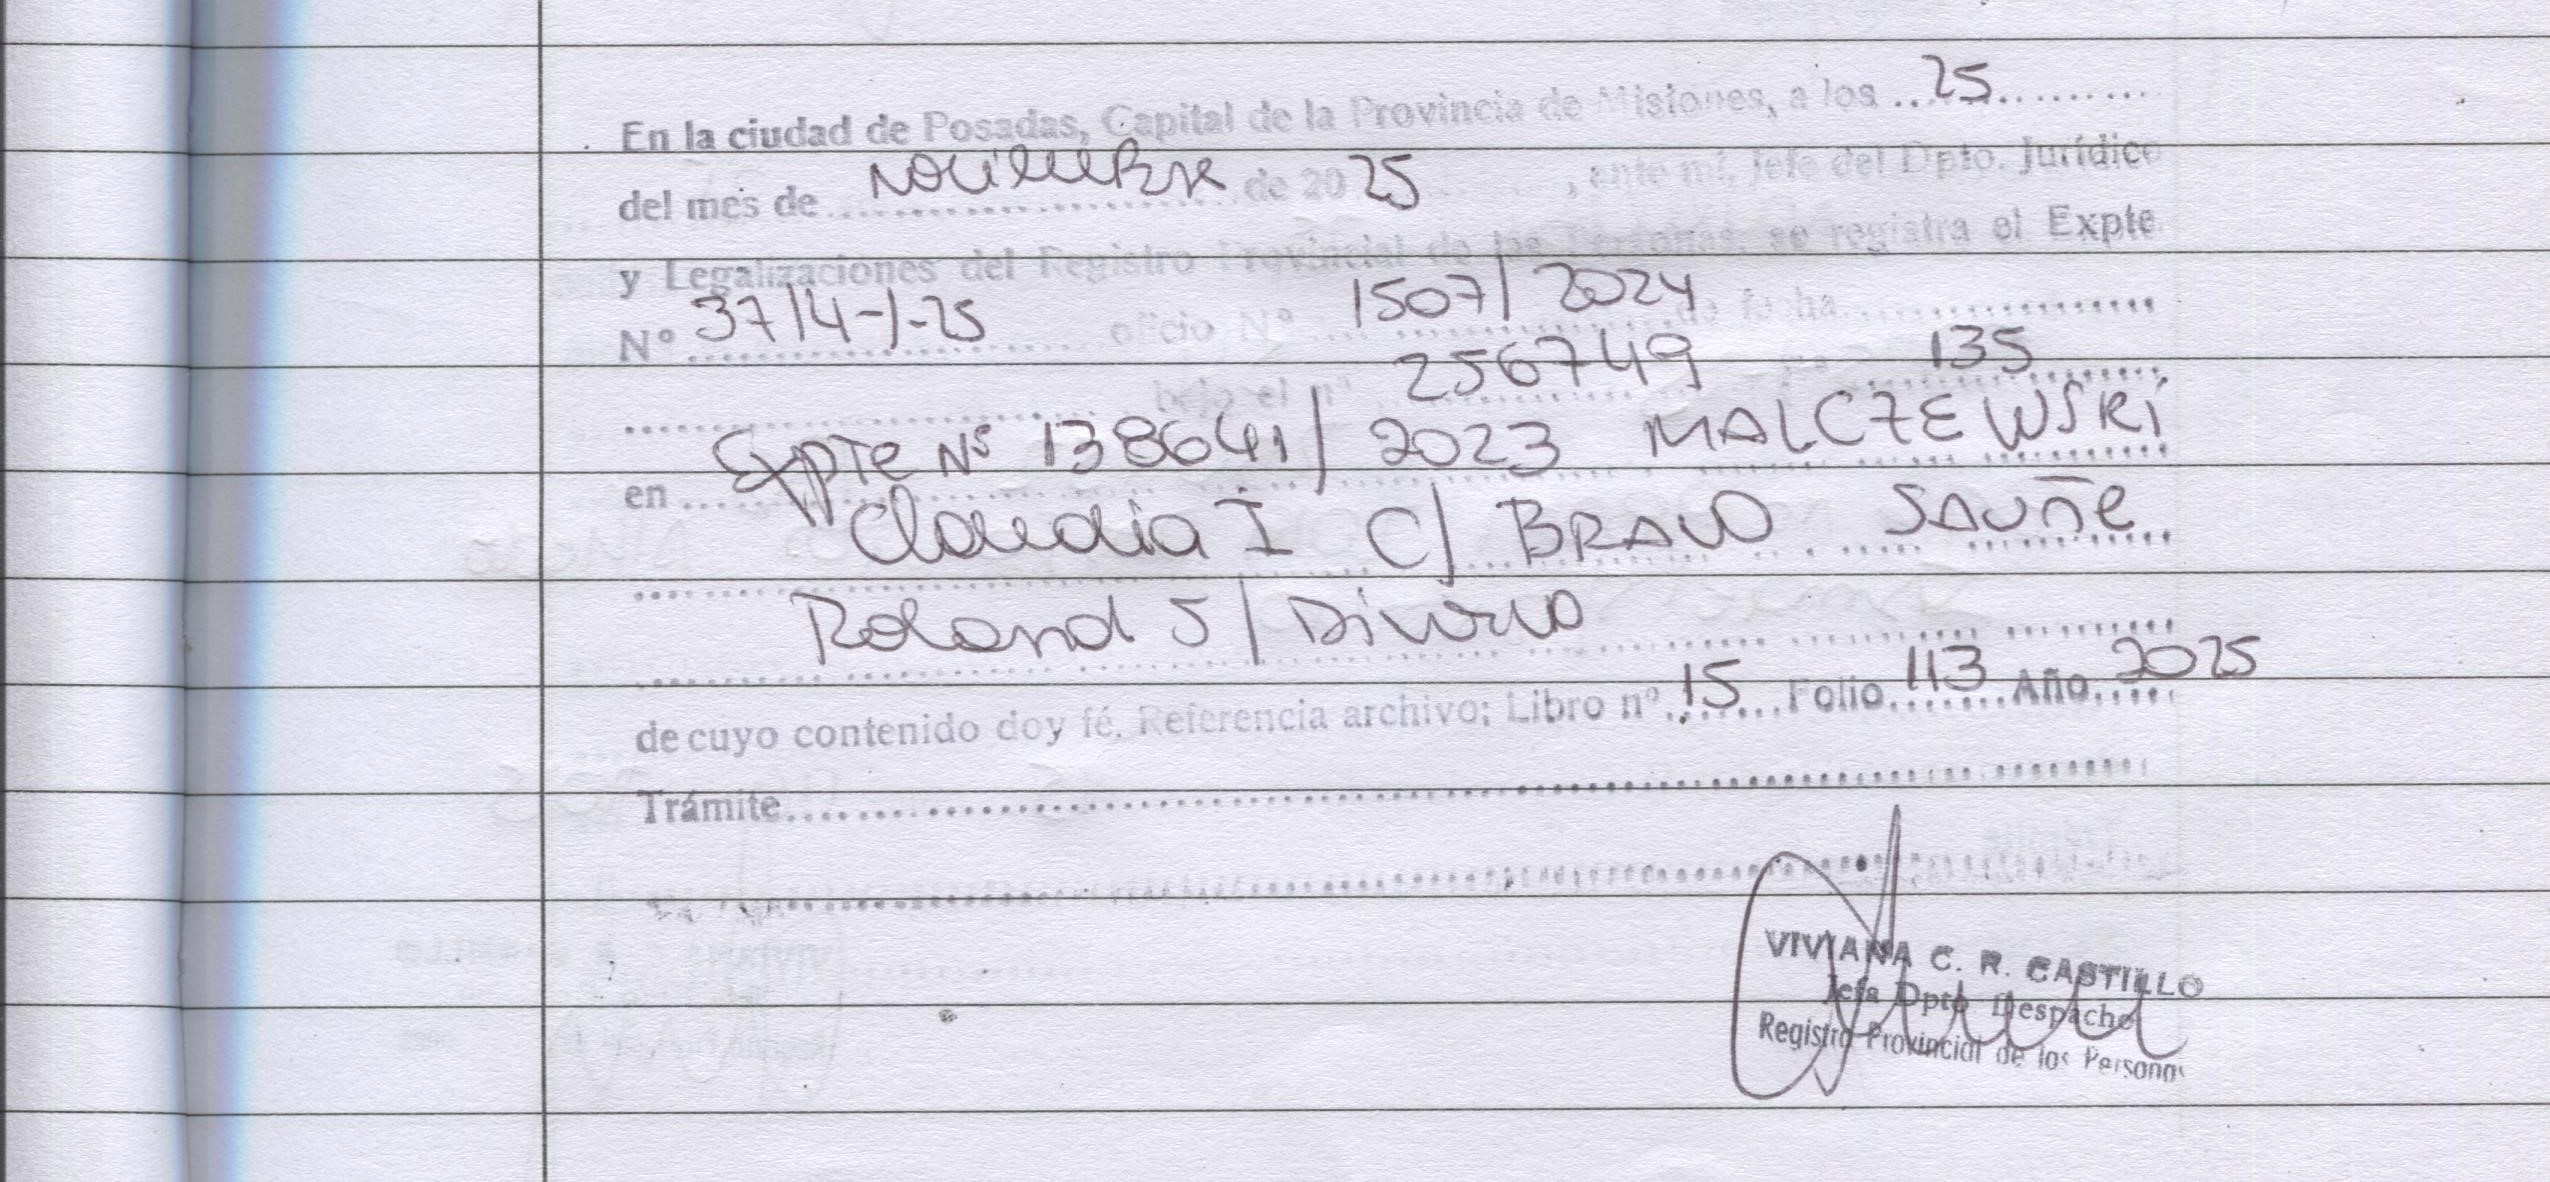 En la ciudad de Posadas, Capital de la Provincia de Misiones, a los ..25..........
del mes de noviembre de 2025 , ante mí, Jefe del Dpto. Jurídico
y Legalizaciones del Registro Provincial de las Personas, se registra el Expte
N° 3714-J-25 oficio N° 1507/2024 de fecha
bajo el n° 256749 135
en Expte Nº 138641/2023 MALCZEWSKI
Claudia I C/ BRAVO SAUÑe
Roland S/ Divorcio
de cuyo contenido doy fé. Referencia archivo; Libro nº 15 Folio 113 Año 2025
Trámite
VIVIANA C. R. CASTILLO
Jefa Dpto Despacho
Registro Provincial de las Personas